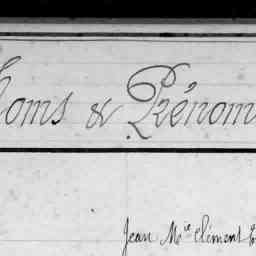 Noms & Prénoms
Jean M.ie Clément